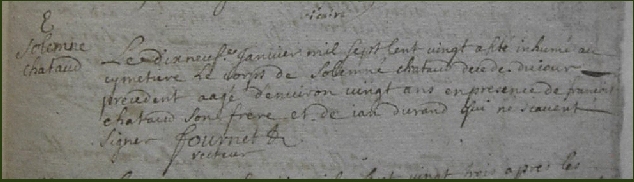 Solemne
chataud
Le dixneuf.e Janvier mil sept Cent vingt a esté inhumé au
cymetiere Le Corps de Solemne chataud decedé du jour
precedent aagé d'environ vingt ans en presence de
chataud son frere et de ian durand qui ne scavent
signer fournet
recteur
vingt trois apres les